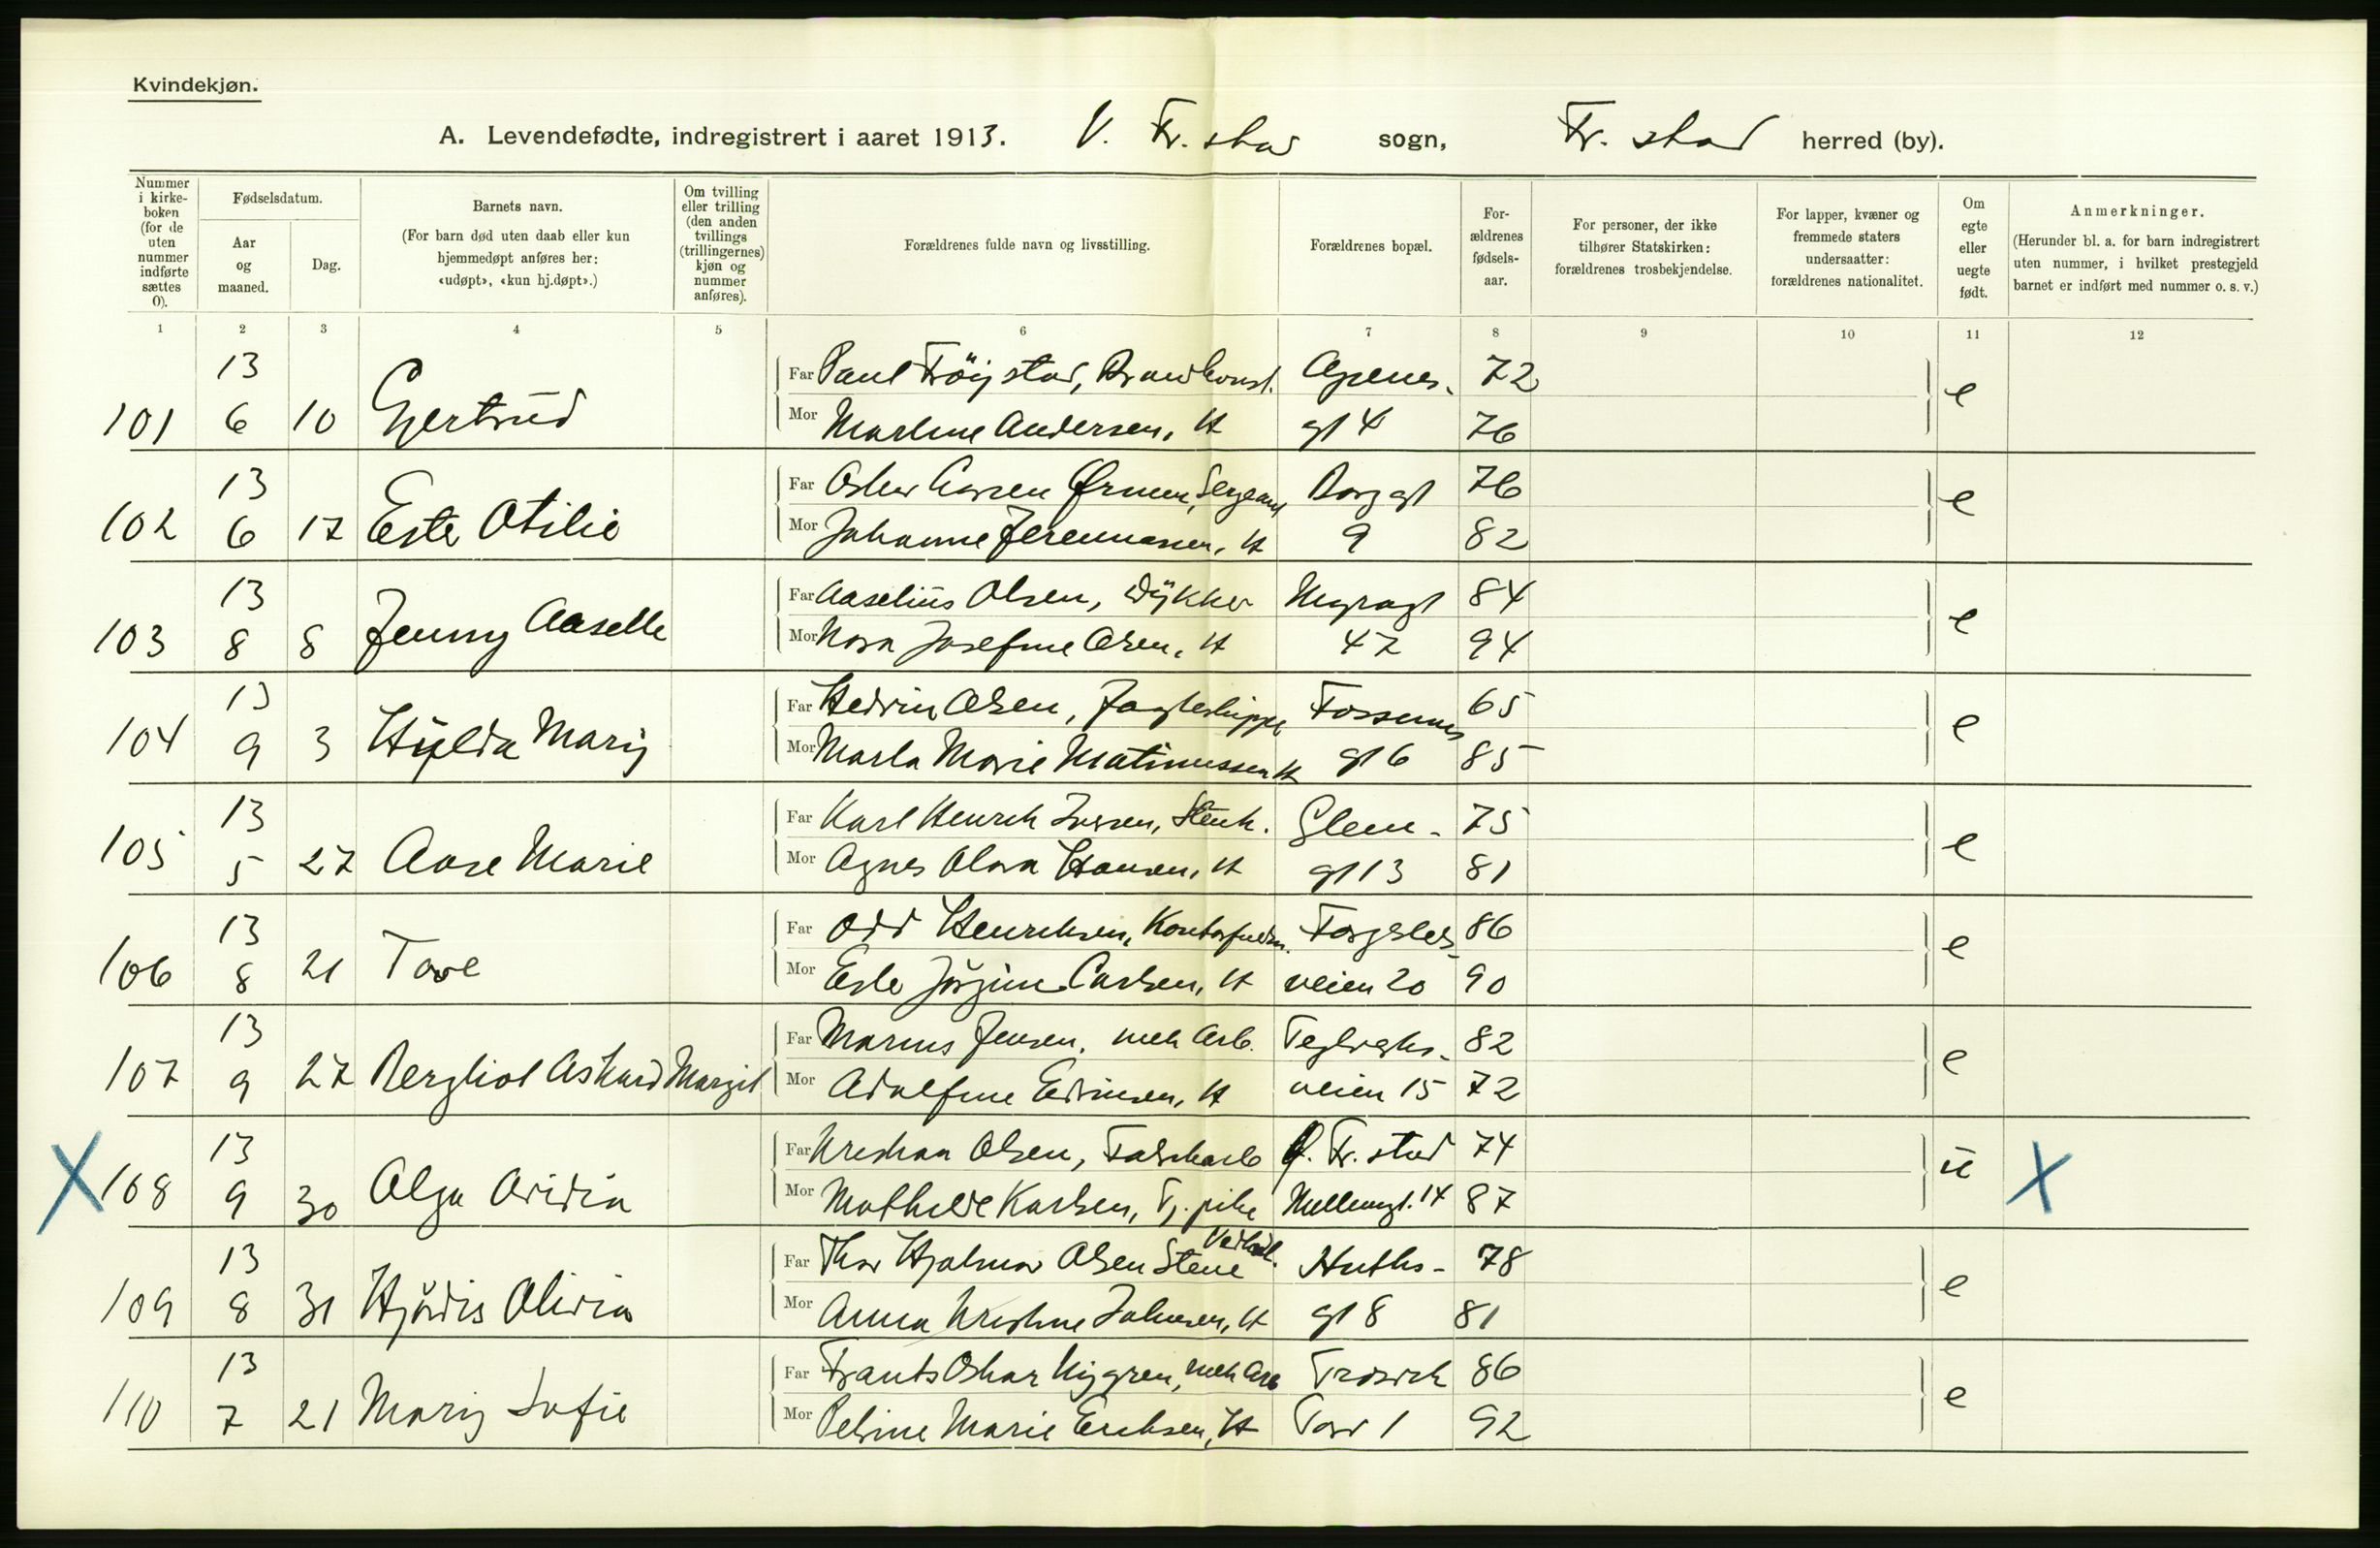 Kvindekjøn.
A. Levendefødte, indregistrert i aaret 1913. V. Fr.stad sogn, Fr.stad herred (by).
Nummer i kirkeboken (for de uten nummer indførte sættes 0).
Fødselsdatum.
Aar og maaned.
Dag.
Barnets navn.
(For barn død uten daab eller kun hjemmedøpt anføres her: «udøpt», «kun hj.døpt».)
Om tvilling eller trilling (den anden tvillings (trillingernes) kjøn og nummer anføres).
Forældrenes fulde navn og livsstilling.
Forældrenes bopæl.
Forældrenes fødselsaar.
For personer, der ikke tilhører Statskirken: forældrenes trosbekjendelse.
For lapper, kvæner og fremmede staters undersaatter: forældrenes nationalitet.
Om egte eller uegte født.
Anmerkninger.
(Herunder bl. a. for barn indregistrert uten nummer, i hvilket prestegjeld barnet er indført med nummer o. s. v.)
1 2 3 4 5 6 7 8 9 10 11 12
13 Far Paul Tröijstad, Brandkonst. Agenes- 72
101 6 10 Gjertrud Mor Marline Andersen, H gt 4 76 e
13 Far Oskar Larsen Ørmen, Sergeant Borggt 76
102 6 17 Ester Otilie Mor Johanne Jeremiassen, H 9 82 e
13 Far Aaselius Olsen, Dykker Nygragt 84
103 8 8 Jenny Aaselle Mor Nora Josefine Olsen, H 47 94 e
13 Far Hedvin Olsen, Jagteskipper Fossumss 65
104 9 3 Hylda Marij Mor Marla Marie Matinussen H gt 6 85 e
13 Far Karl Henrik Iversen, Stenh. Glem- 75
105 5 27 Aase Marie Mor Agnes Olava Hansen, H gt 13 81 e
13 Far Odd Henriksen, Kontorfuldm. Torgsles- 86
106 8 21 Tove Mor Ester Jörgine Carlsen, H veien 20 90 e
13 Far Marius Jensen, mek Arb. Teglverks- 82
107 9 27 Bergliot Ashard Margit Mor Adolfine Edvinsen, H veien 15 72 e
13 Far Kristian Olsen, Fabrikarb Ø. Fr.stad 74
X 108 9 30 Olga Ovidia Mor Mathilde Karlsen, Tj. pike Mellemgt. 14 87 u X
13 Far Thor Hjalmar Olsen Stene Vedhdl. Huths- 78
109 8 31 Hjördis Olivia Mor Anna Kristine Johnsen, H gt 8 81 e
13 Far Frants Oskar Nygren, mek Arb Trosvik 86
110 7 21 Marij Sofie Mor Petrine Marie Eriksen, H Torv 1 92 e